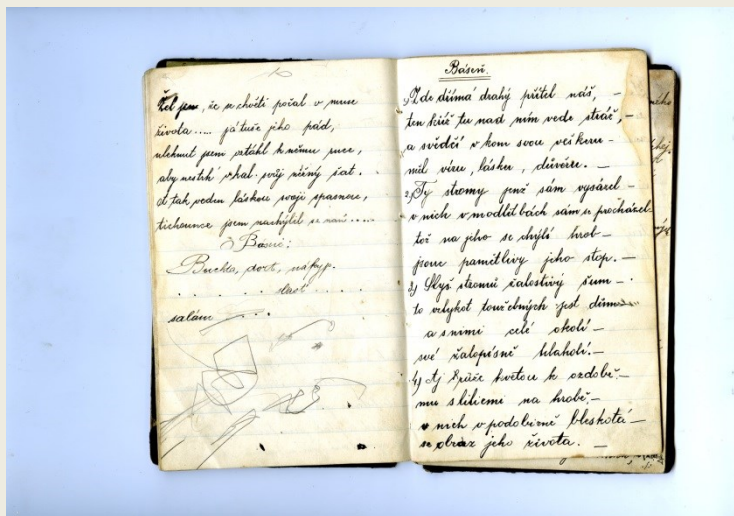 Žel jsem, že se chvěti počal v muce
života..... já tuše jeho pád,
ulehnut jsem vztáhl k němu ruce,
aby nestrh' vkal. svůj něžný šat.
A tak veden láskou svojí spasnou,
tichounce jsem nachýlil se nań.....
Báseň:
Buchta, dort,
. . . . . . dort . . . . .
salám . . . . .
Báseň.
1) Zde dřímá drahý přítel náš, –
ten kříž tu nad ním vede stráž, –
a svědčí v kom svou veškeru –
měl víru, lásku, důvěru. –
2) Ty stromy jenž sám vysázel –
v nich v modlitbách sám se procházel
tož na jeho se chýlí hrob –
jsouc pamětlivy jeho stop. –
3) Slyš stromů žalostivý šum –
to vzlykot toužebných jest dům
a s nimi celé okolí –
své žalopisně hlaholí. –
4) Aj kvetou k ozdobě –
mu s liliemi na hrobě, –
v nich v podobizně bleskotá –
se obraz jeho života. –